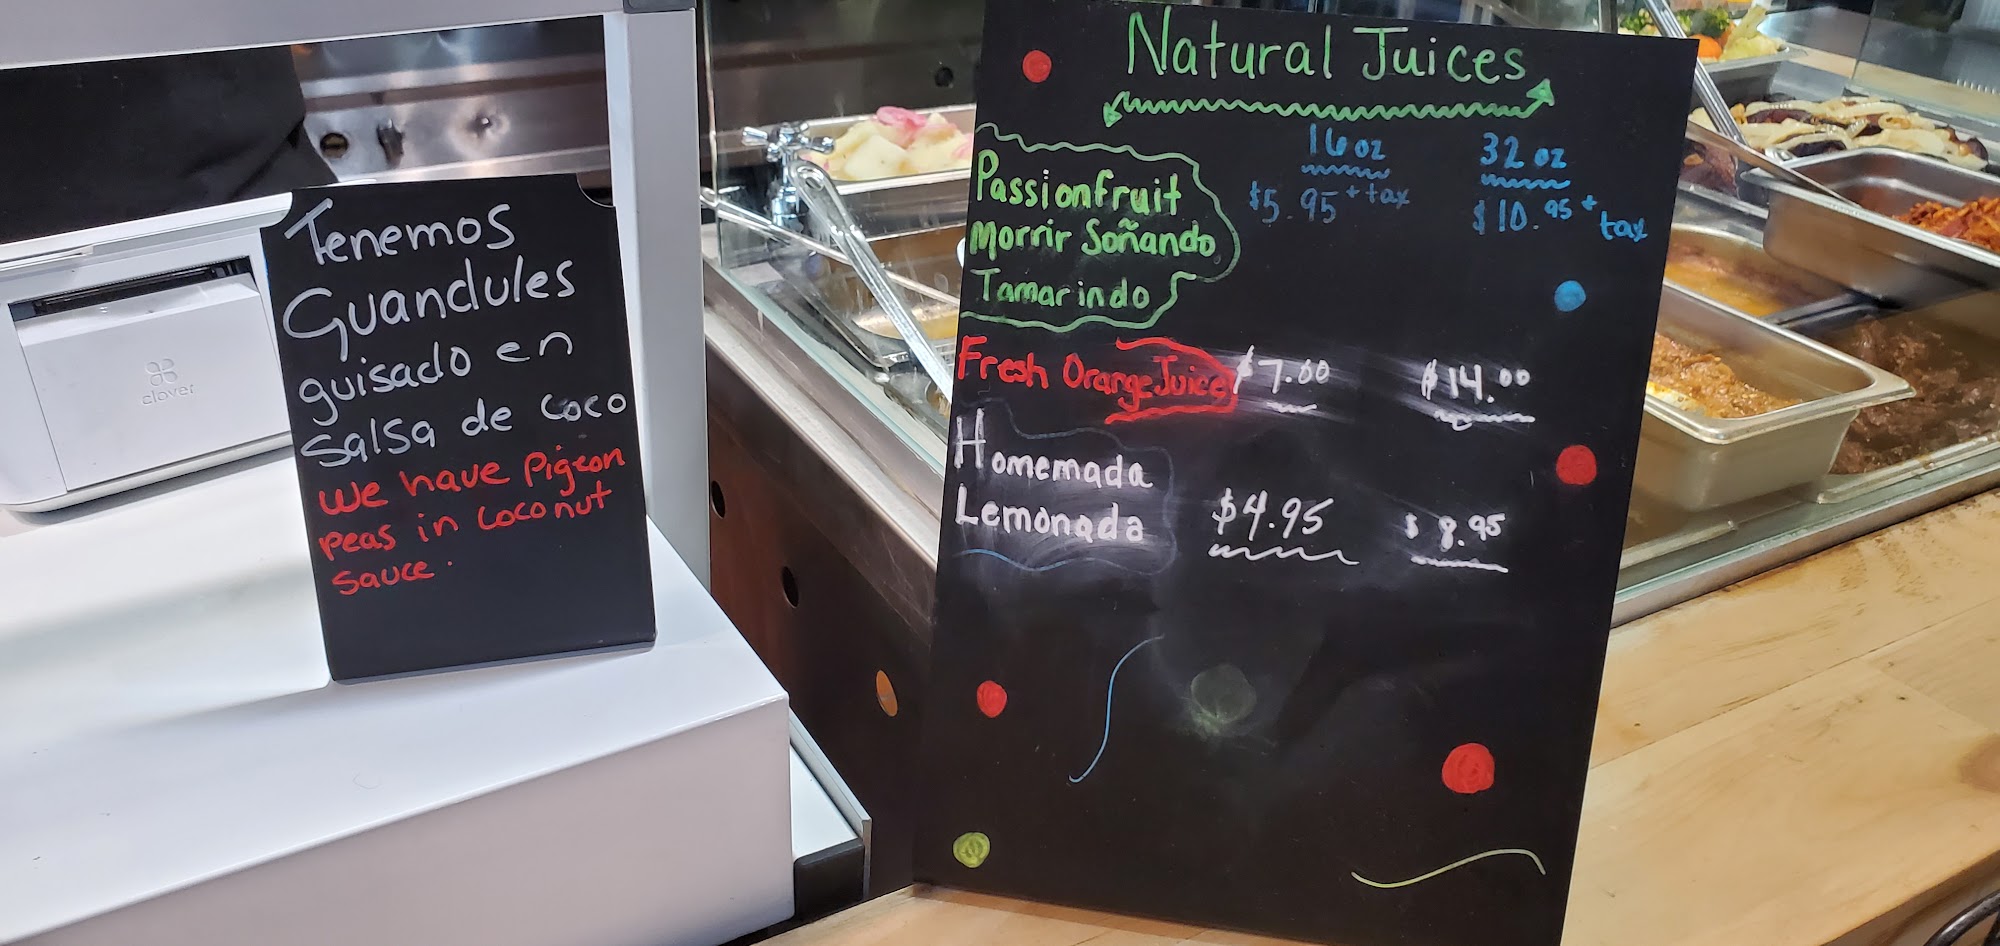 Tenemos
Guandules
guisado en
salsa de coco
we have pigeon
peas in coconut
sauce.
clover
Natural Juices
16 oz 32 oz
Passionfruit $5.95 + tax $10.95 + tax
Morrir Soñando
Tamarindo
Fresh Orange Juice $7.00 $14.00
Homemada
Lemonada $4.95 $8.95